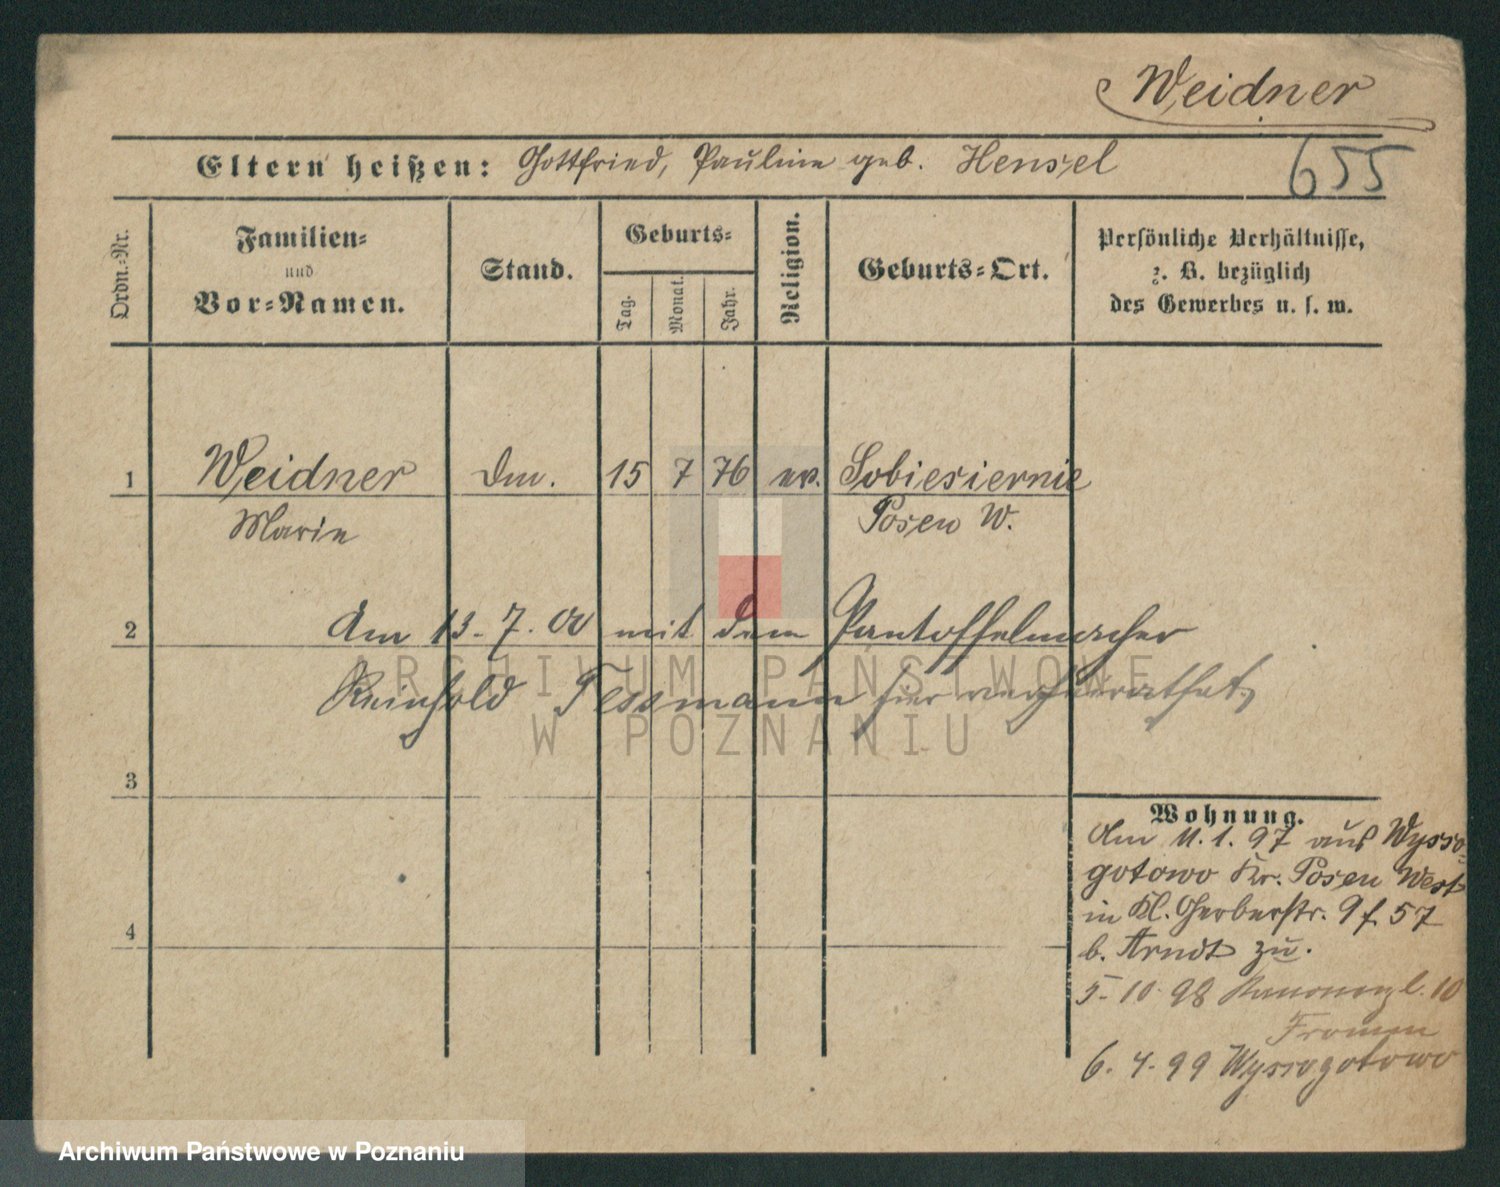 Weidner
Eltern heißen: Gottfried, Pauline geb. Hensel
655
Ordn.-Nr.
Familien-
und
Vor-Namen.
Stand.
Geburts-
Tag.
Monat.
Jahr.
Religion.
Geburts-Ort.
Persönliche Verhältnisse,
z. B. bezüglich
des Gewerbes u. s. w.
1 Weidner Dm. 15 7 76 ev. Sobiesiernie
Marie Posen W.
2 Am 13.7.00 mit dem Pantoffelmacher
Reinhold Tessmann hier verheirathet
ARCHIWUM PAŃSTWOWE
W POZNANIU
3
Wohnung.
Am 11.1.97 aus Wysso-
gotowo Kr. Posen West
in Kl. Gerberstr. 9 f. 57
b. Arndt zu.
4
5.10.98 Kanonenpl. 10
Fromm
6.4.99 Wyssogotowo
Archiwum Państwowe w Poznaniu